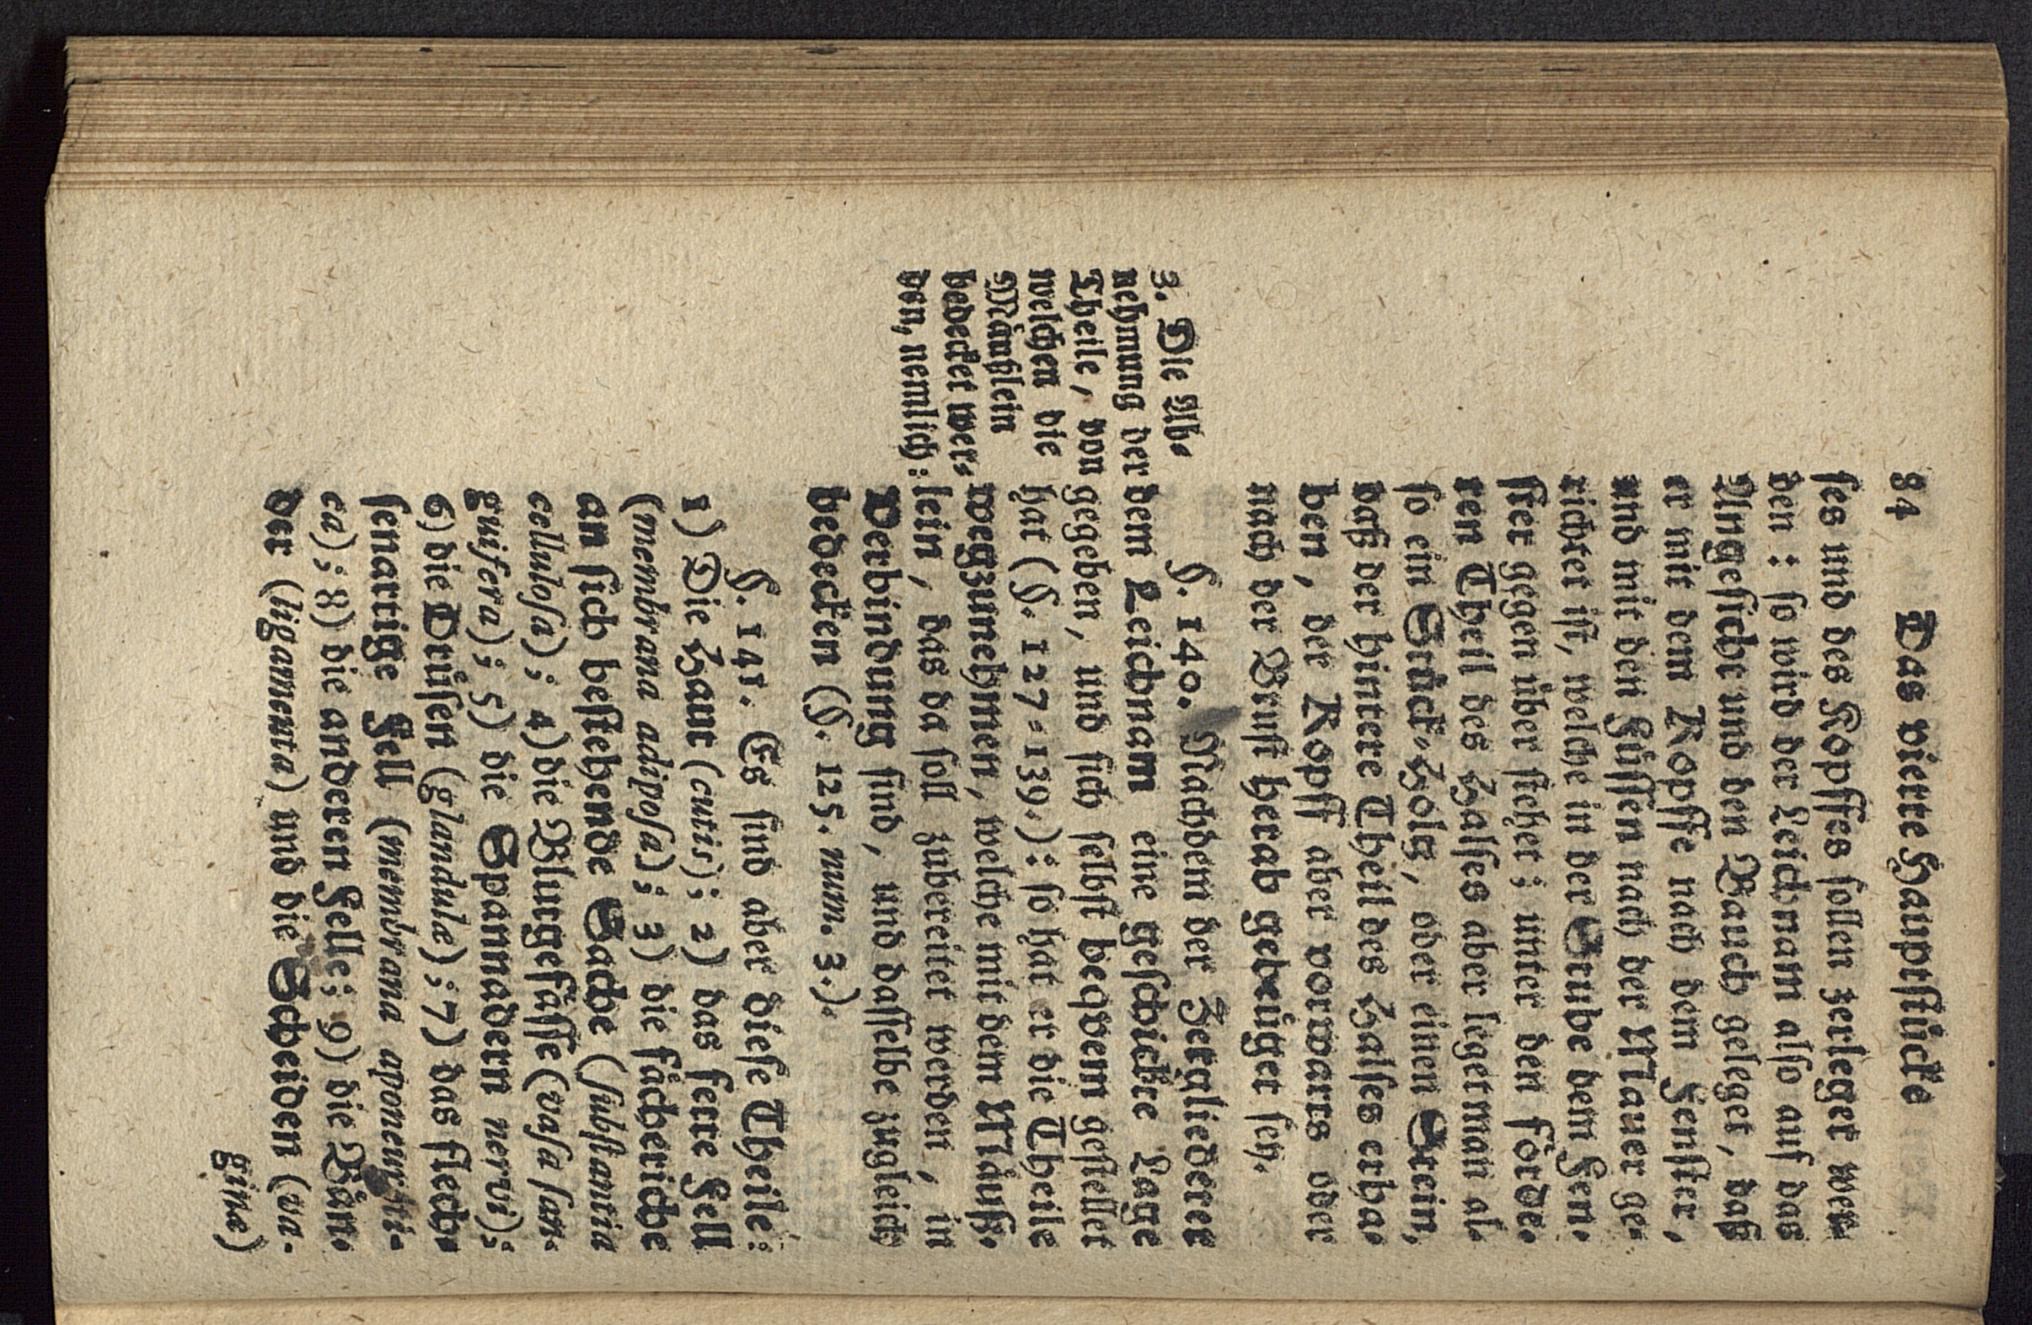 84 Das vierte Hauptstücke
ses und des Kopffes sollen zerleget wer-
den : so wird der Leichnam also auf das
Angesichte und den Bauch geleget, daß
er mit dem Kopffe nach dem Fenster,
und mit den Füssen nach der Mauer ge-
richtet ist, welche in der Stube dem Fen-
ster gegen über stehet ; unter den förde-
ren Theil des Halses aber leget man al-
so ein Stück-Holtz, oder einen Stein,
daß der hintere Theil des Halses erha-
ben, der Kopff aber vorwarts oder
nach der Brust herab gebeüget sey.
3. Die Ab-
nehmung der
Theile, von
welchen die
Mäußlein
bedecket wer-
den, nemlich:
§. 140. Nachdem der Zergliederer
dem Leichnam eine geschickte Lage
gegeben, und sich selbst beqvem gestellet
hat (§. 127-139.) : so hat er die Theile
wegzunehmen, welche mit dem Mäuß-
lein, das da soll zubereitet werden, in
Verbindung sind, und dasselbe zugleich
bedecken (§. 125. num. 3.).
§. 141. Es sind aber diese Theile:
1) Die Haut (cutis); 2) das fette Fell
(membrana adiposa); 3) die fächerichte
an sich bestehende Sache (substantia
cellulosa); 4) die Blutgefässe (vasa san-
guifera); 5) die Spannadern nervi);
6) die Drüsen (glandulæ); 7) das flech-
senartige Fell (membrana aponevroti-
ca); 8) die anderen Felle; 9) die Bän-
der (ligamenta) und die Scheiden (va-
ginæ)